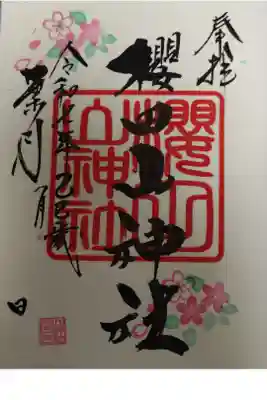 奉拝
櫻田山神社
令和七年乙巳歳
葉月 日
櫻田山神社